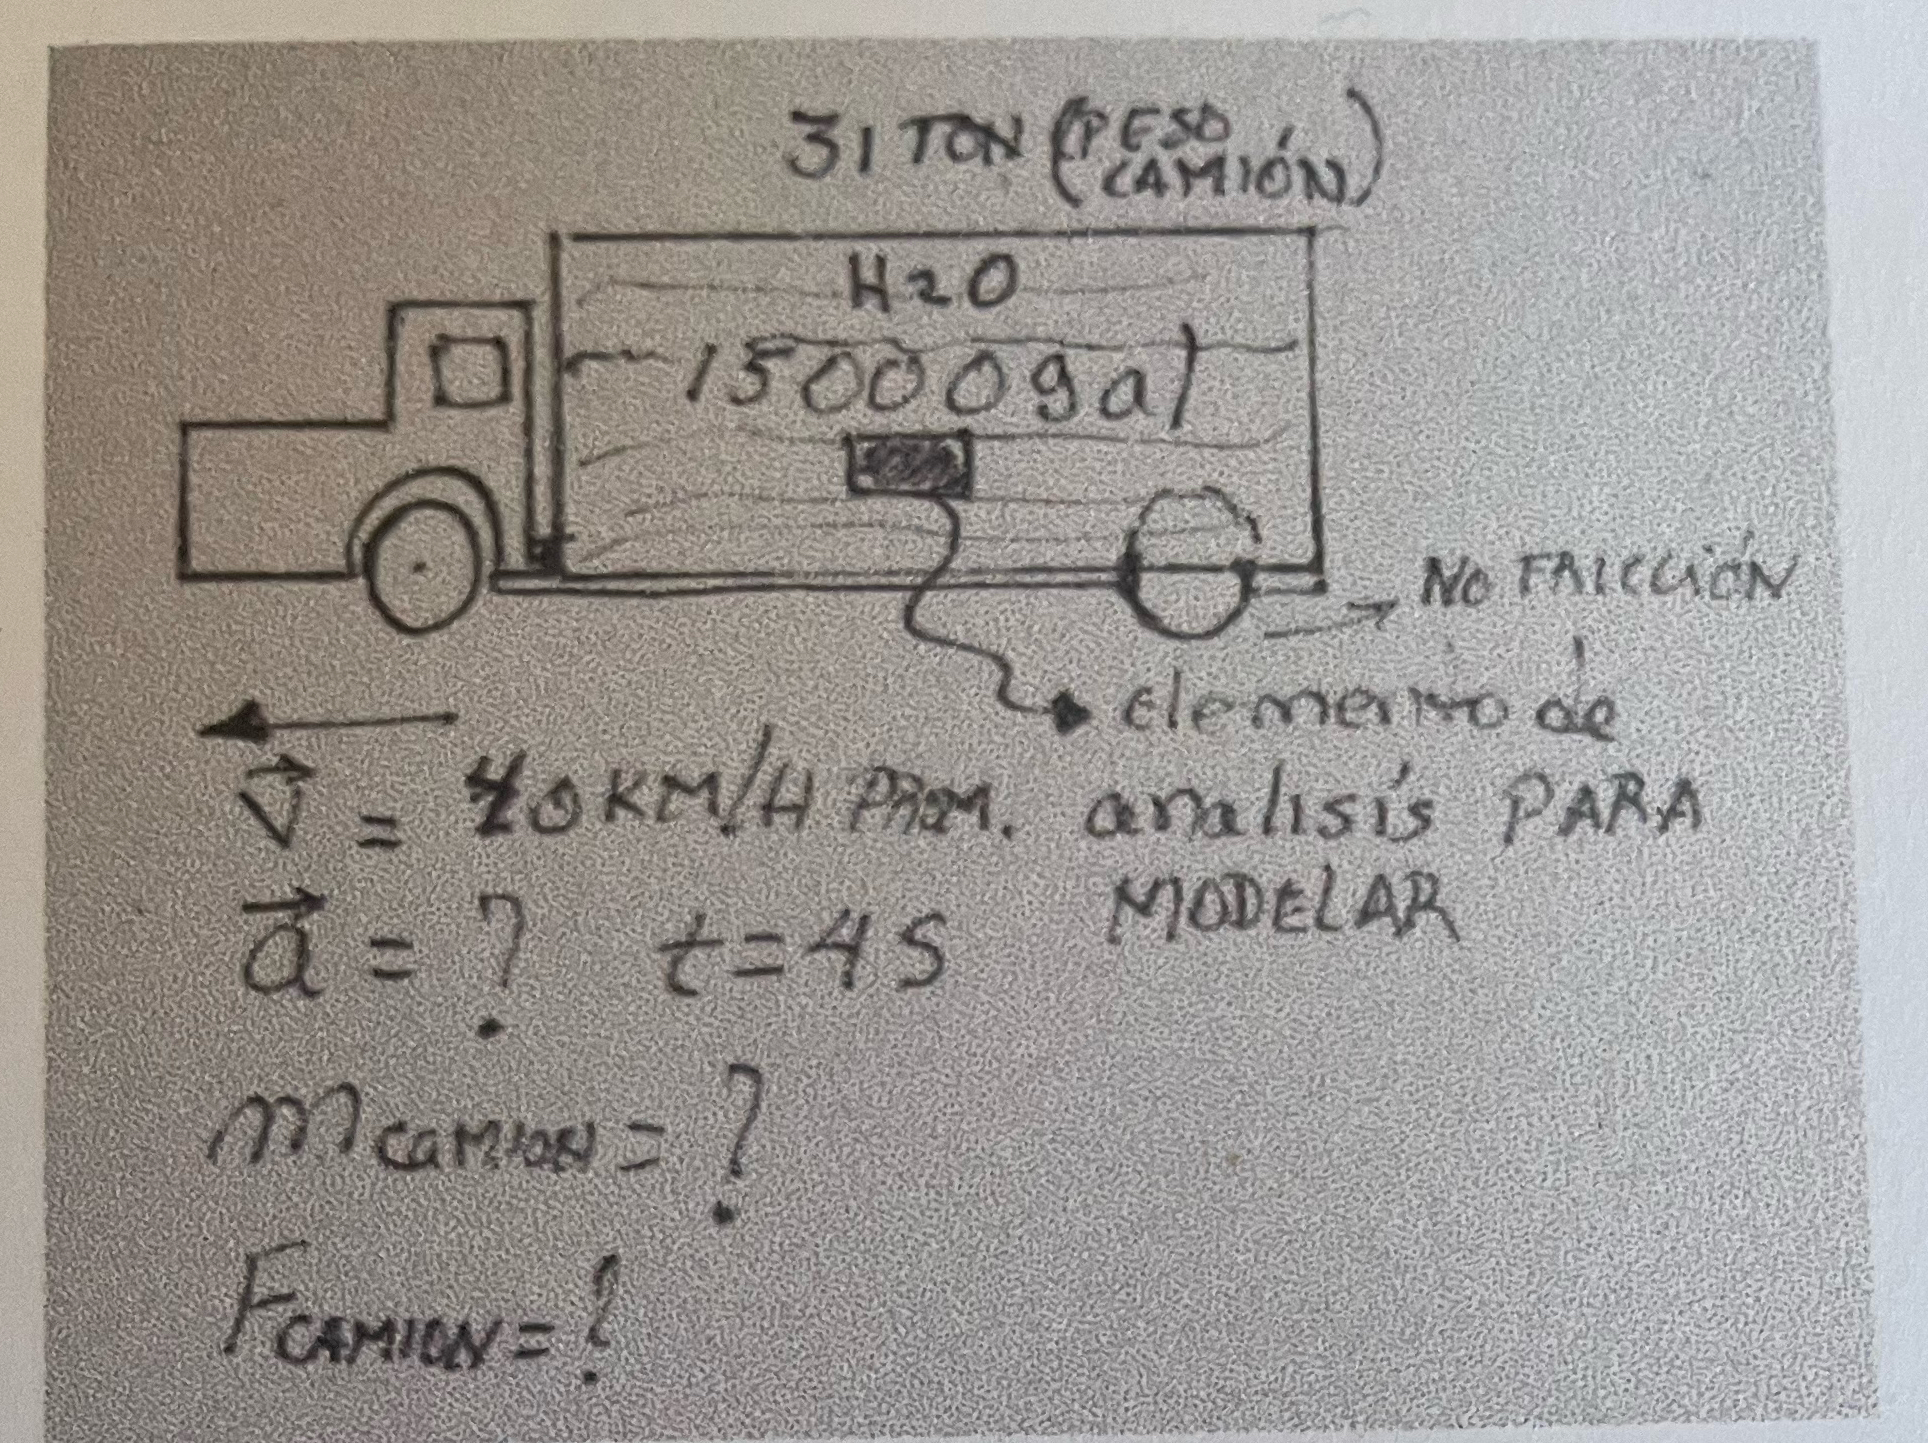 31 TON (PESO CAMIÓN)
H2O
15000gal
NO FRICCIÓN
elemento de
analisis PARA
MODELAR
V = 40KM/H PROM.
a = ? t=4S
mCAMION = ?
FCAMION = ?